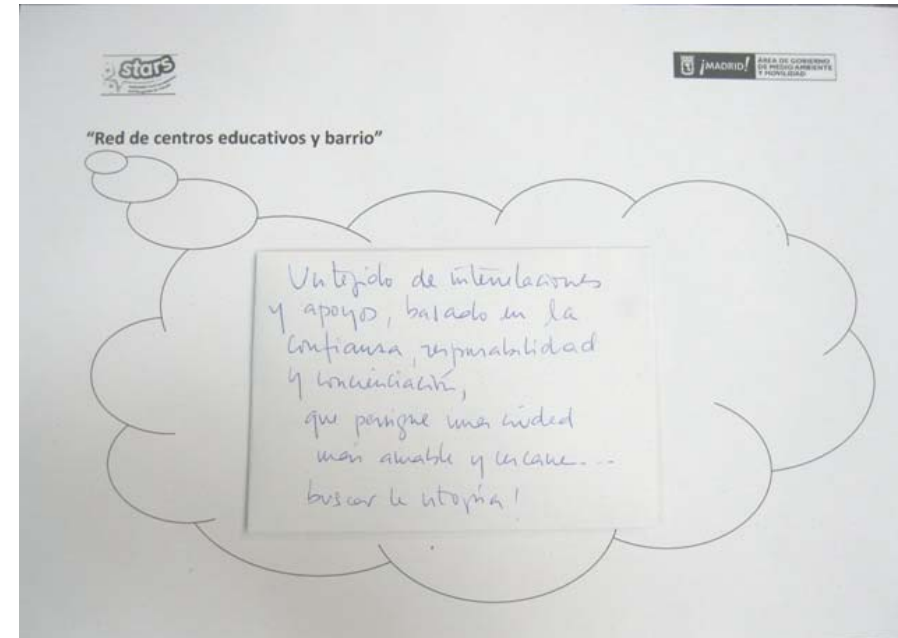 stars
¡MADRID!
ÁREA DE GOBIERNO
DE MEDIO AMBIENTE
Y MOVILIDAD
"Red de centros educativos y barrio"
Un tejido de interrelaciones
y apoyos, basado en la
confianza, responsabilidad
y concienciación,
que persigue una ciudad
más amable y cercana...
buscar la utopía!